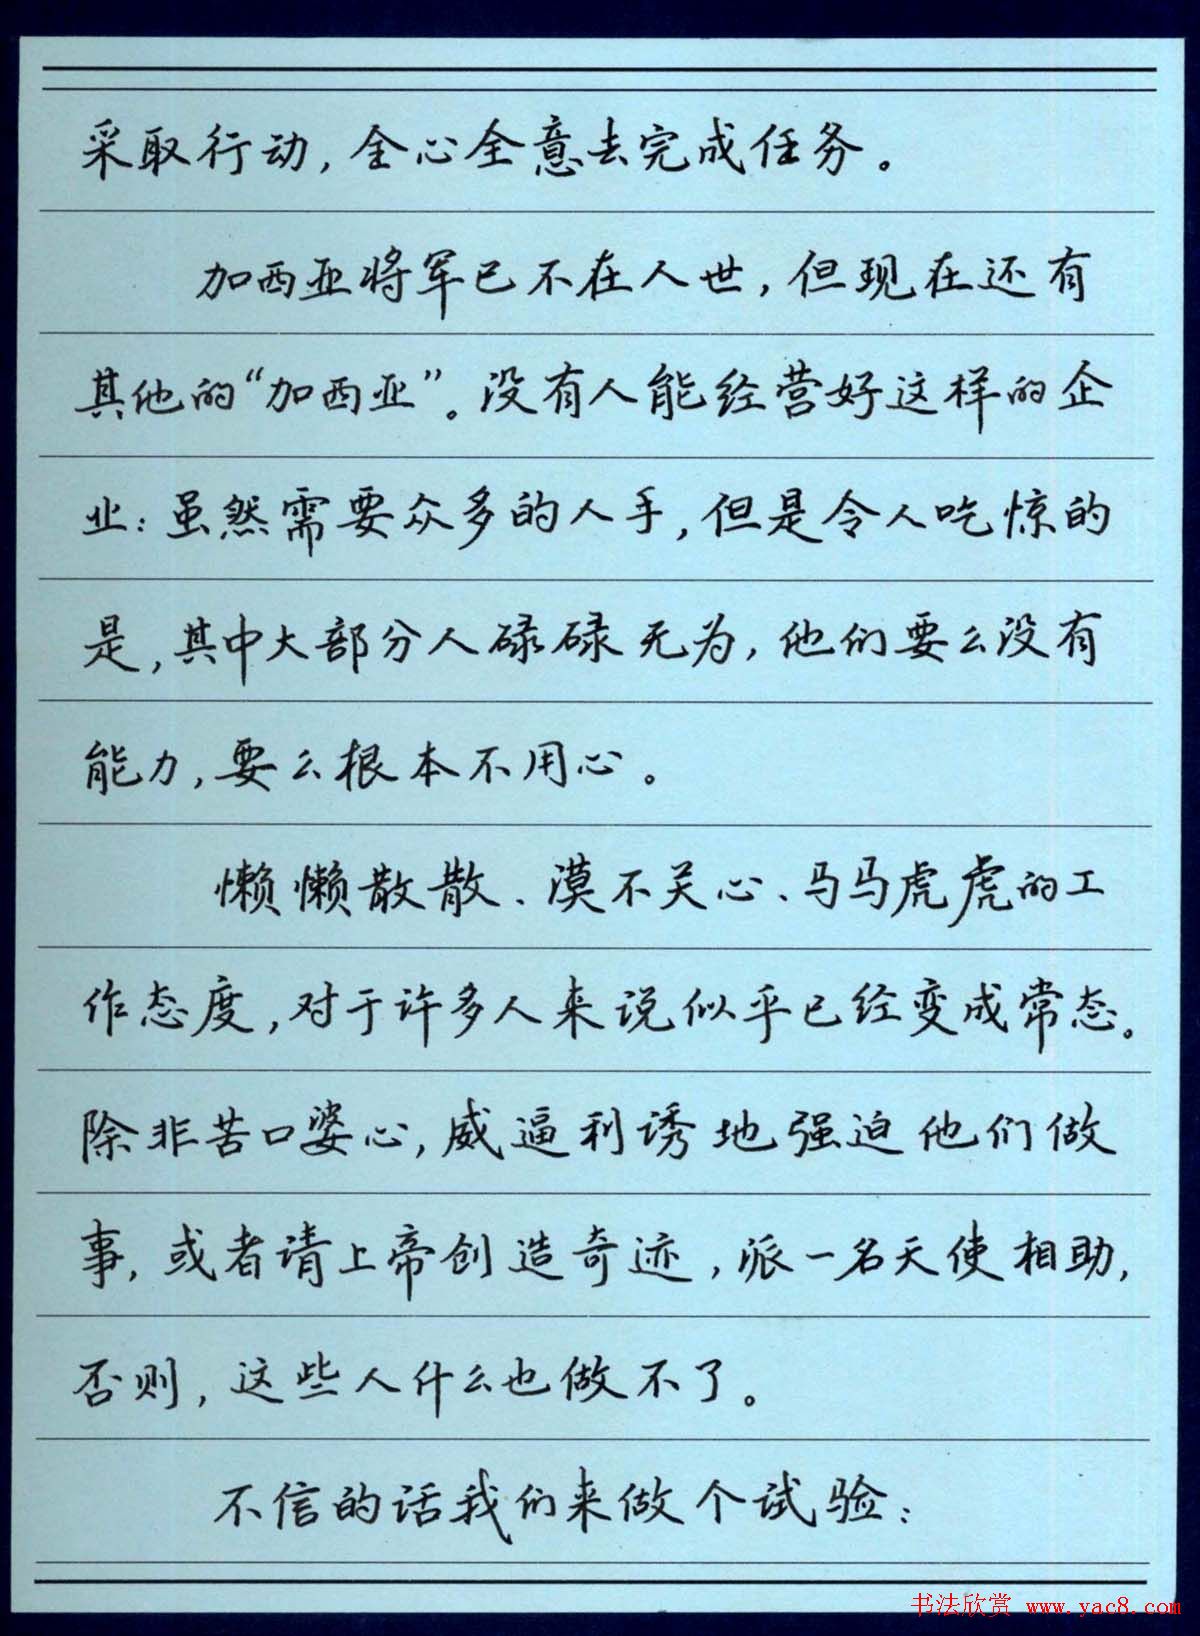 采取行动，全心全意去完成任务。
加西亚将军已不在人世，但现在还有
其他的“加西亚”。没有人能经营好这样的企
业：虽然需要众多的人手，但是令人吃惊的
是，其中大部分人碌碌无为，他们要么没有
能力，要么根本不用心。
懒懒散散、漠不关心、马马虎虎的工
作态度，对于许多人来说似乎已经变成常态。
除非苦口婆心，威逼利诱地强迫他们做
事，或者请上帝创造奇迹，派一名天使相助，
否则，这些人什么也做不了。
不信的话我们来做个试验：
书法欣赏 www.yac8.com